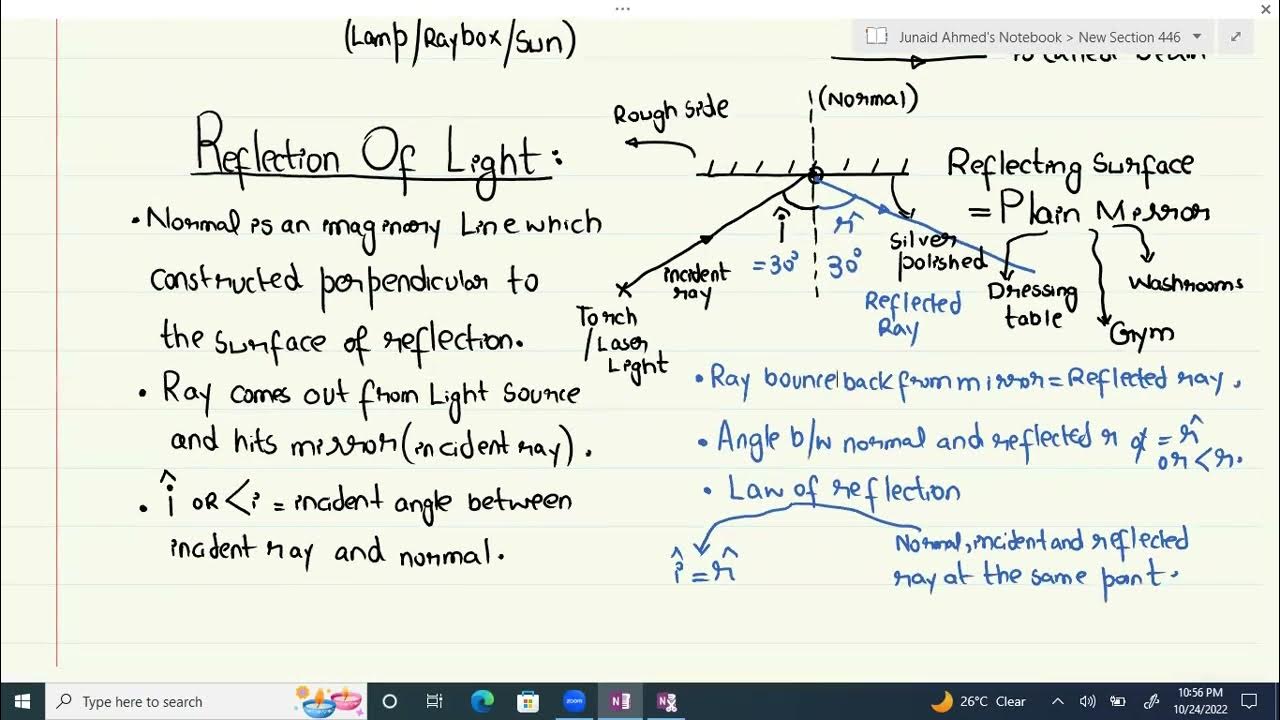 Junaid Ahmed's Notebook > New Section 446
(Lamp/Raybox/Sun)
Reflection Of Light:
• Normal is an imaginary Line which
constructed perpendicular to
the surface of reflection.
• Ray comes out from Light Source
and hits mirror (incident ray).
• î OR <i = incident angle between
incident ray and normal.
Rough side
(Normal)
Reflecting Surface
= Plain Mirror
î
= 30°
r̂
30°
Silver
polished
incident
ray
Torch
/Laser
Light
Reflected
Ray
Dressing
table
Gym
Washrooms
• Ray bounce back from mirror = Reflected ray.
• Angle b/w normal and reflected r = r̂
or <r.
• Law of reflection
î = r̂
Normal, incident and reflected
ray at the same point.
Type here to search
zoom
26°C Clear
10:56 PM
10/24/2022